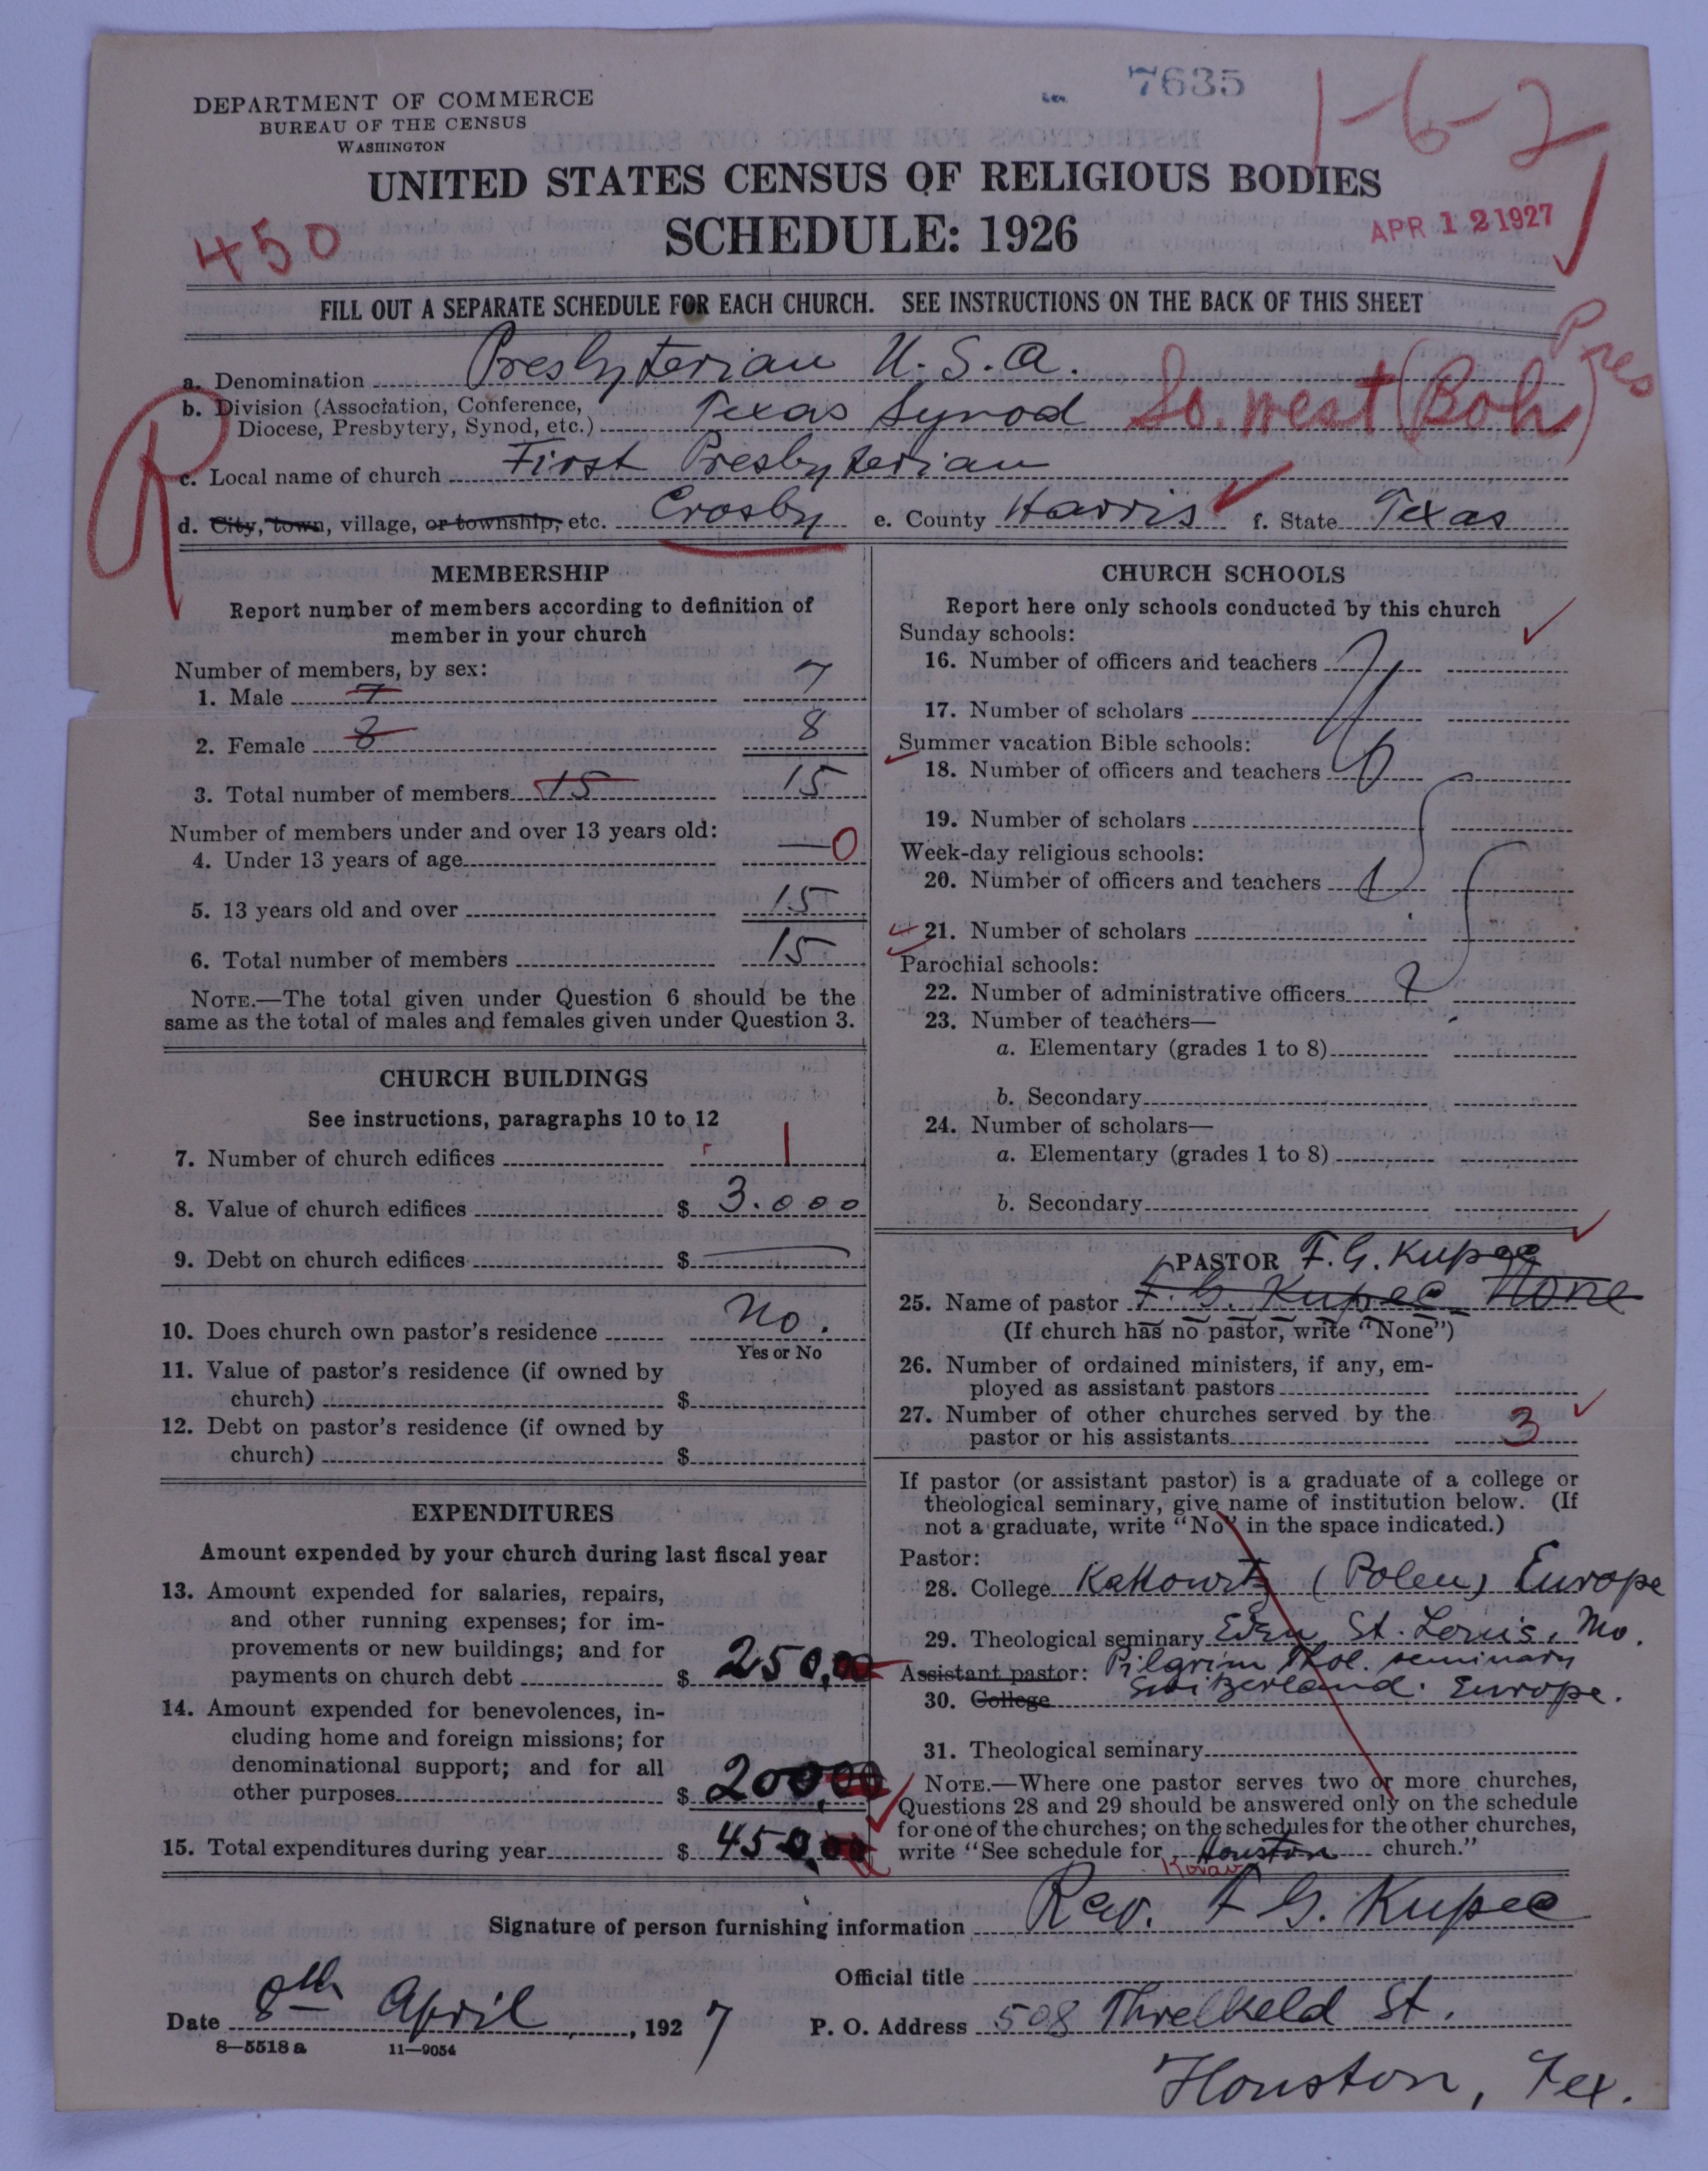 7635
1-6-2
DEPARTMENT OF COMMERCE
BUREAU OF THE CENSUS
WASHINGTON
UNITED STATES CENSUS OF RELIGIOUS BODIES
SCHEDULE: 1926
APR 12 1927
450
FILL OUT A SEPARATE SCHEDULE FOR EACH CHURCH. SEE INSTRUCTIONS ON THE BACK OF THIS SHEET
a. Denomination Presbyterian U.S.A. Pres
b. Division (Association, Conference,
Diocese, Presbytery, Synod, etc.) Texas Synod So. West (Boh)
R
c. Local name of church First Presbyterian
d. City, town, village, or township, etc. Crosby e. County Harris f. State Texas
MEMBERSHIP
Report number of members according to definition of
member in your church
Number of members, by sex:
1. Male 7 7
2. Female 8 8
3. Total number of members 15 15
Number of members under and over 13 years old:
4. Under 13 years of age — 0
5. 13 years old and over 15
6. Total number of members 15
NOTE.—The total given under Question 6 should be the
same as the total of males and females given under Question 3.
CHURCH BUILDINGS
See instructions, paragraphs 10 to 12
7. Number of church edifices 1
8. Value of church edifices $ 3.000
9. Debt on church edifices $ —
10. Does church own pastor's residence No.
Yes or No
11. Value of pastor's residence (if owned by
church) $
12. Debt on pastor's residence (if owned by
church) $
EXPENDITURES
Amount expended by your church during last fiscal year
13. Amount expended for salaries, repairs,
and other running expenses; for im-
provements or new buildings; and for
payments on church debt $ 250,00
14. Amount expended for benevolences, in-
cluding home and foreign missions; for
denominational support; and for all
other purposes $ 200,00
15. Total expenditures during year $ 450,00
CHURCH SCHOOLS
Report here only schools conducted by this church
Sunday schools:
16. Number of officers and teachers
17. Number of scholars
Summer vacation Bible schools:
18. Number of officers and teachers
19. Number of scholars
Week-day religious schools:
20. Number of officers and teachers
21. Number of scholars
Parochial schools:
22. Number of administrative officers
23. Number of teachers—
a. Elementary (grades 1 to 8)
b. Secondary
24. Number of scholars—
a. Elementary (grades 1 to 8)
b. Secondary
PASTOR F. G. Kupec
25. Name of pastor F. G. Kupec None
(If church has no pastor, write "None")
26. Number of ordained ministers, if any, em-
ployed as assistant pastors
27. Number of other churches served by the
pastor or his assistants 3
If pastor (or assistant pastor) is a graduate of a college or
theological seminary, give name of institution below. (If
not a graduate, write "No" in the space indicated.)
Pastor:
28. College Kattowitz (Polen) Europe
29. Theological seminary Eden St. Louis, Mo.
Assistant pastor: Pilgrim Theol. seminary
30. College Switzerland. Europe.
31. Theological seminary
NOTE.—Where one pastor serves two or more churches,
Questions 28 and 29 should be answered only on the schedule
for one of the churches; on the schedules for the other churches,
write "See schedule for Houston church."
Signature of person furnishing information Rev. F G. Kupec
Official title
Date 8th April, 1927 P. O. Address 508 Threlkeld St.
8—5518 a 11—9054
Houston, Tex.